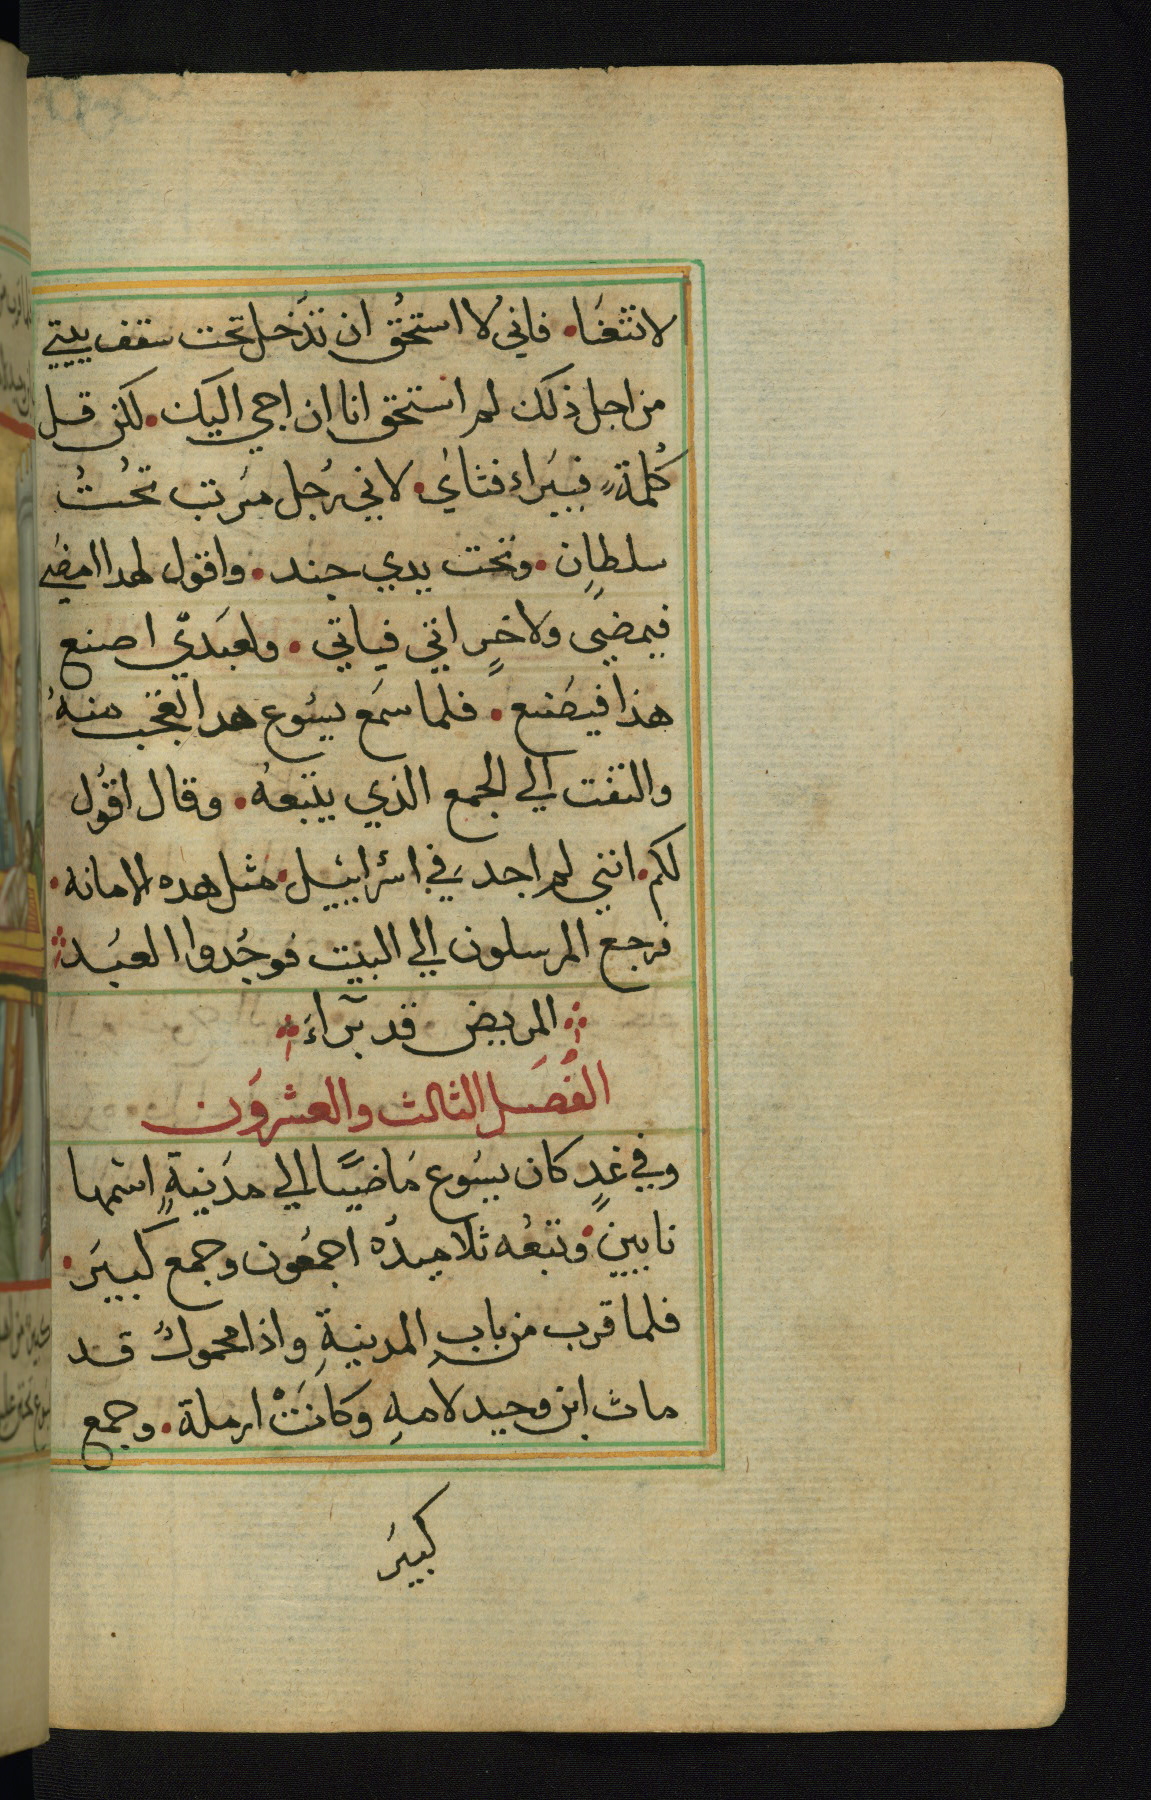 لا تتعنَا. فاني لا استحُق ان تدَخل تحت سقف بيتي
من اجل ذلك لم استحق انا ان اجي اليك. لكن قل
كُلمة فيبَراء فتايَ. لاني رُجل مَرتب تحُتُ
سلطانٍ. وتحت يدي جند. واقول لهدا امضَي
فيمضي ولاخرٍ اتي فياتي. ولعبَدي اصنع
هذا فيصَنع. فلما سمَع يسُوع هدا تعجب منهُ
والتفت الي الجمع الذي يتبعهُ. وقال اقُول
لكم. انني لم اجد في اسرائيل. مثل هده الامانة.
فرجع المرسلون الي البيت فوجُدوا العبَد
المريض قد برآءَ
الفُصَل الثالث والعشروَن
وفي غدٍ كان يسُوع مَاضيًا الي مدَينةٍ اسمها
نايين. وتبعُه تلاميدُه اجمعُون وجمع كبيَر.
فلما قرب من باب المدينةِ واذا محمولُ قد
مات ابن وحيد لامهِ وكانَتْ ارملة. وجمع
كبيرَ